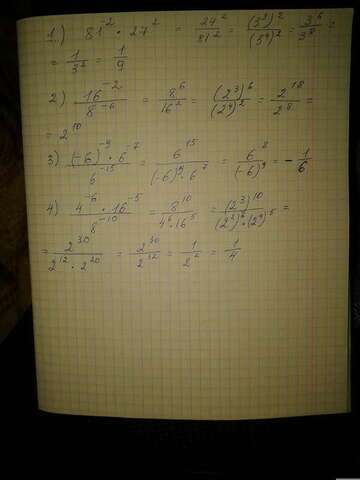 1.) 81⁻² · 27² = 27² / 81² = (3³)² / (3⁴)² = 3⁶ / 3⁸ =
= 1 / 3² = 1 / 9
2) 16⁻² / 8⁻⁶ = 8⁶ / 16² = (2³)⁶ / (2⁴)² = 2¹⁸ / 2⁸ =
= 2¹⁰
3) (-6)⁻⁹ · 6⁻⁷ / 6⁻¹⁵ = 6¹⁵ / (-6)⁹ · 6⁷ = 6⁸ / (-6)⁹ = - 1 / 6
4) 4⁻⁶ · 16⁻⁵ / 8⁻¹⁰ = 8¹⁰ / 4⁶ · 16⁵ = (2³)¹⁰ / (2²)⁶ · (2⁴)⁵ =
= 2³⁰ / 2¹² · 2²⁰ = 2³⁰ / 2³² = 1 / 2² = 1 / 4